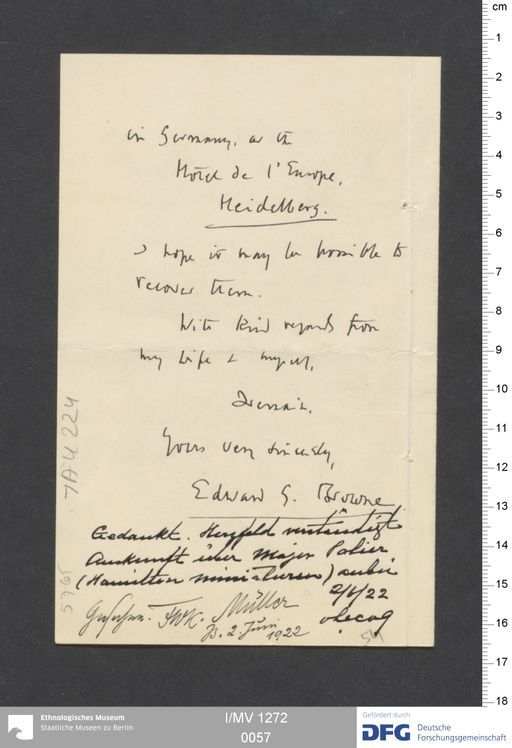 in Germany, at the
Hôtel de l'Europe,
Heidelberg.
I hope it may be possible to
recover them.
With kind regards from
my wife & myself,
I remain,
Yours very sincerely,
Edward G. Browne
Gedankt. Herzfeld verständigt
Auskunft über Major
(Hamilton miniaturen)
2/6/22
Gesehen. FWK. Müller
B. 2. Juni 1922
7A4224
5765
57
cm
1
2
3
4
5
6
7
8
9
10
11
12
13
14
15
16
17
18
Ethnologisches Museum
Staatliche Museen zu Berlin
I/MV 1272
0057
Gefördert durch
DFG
Deutsche
Forschungsgemeinschaft